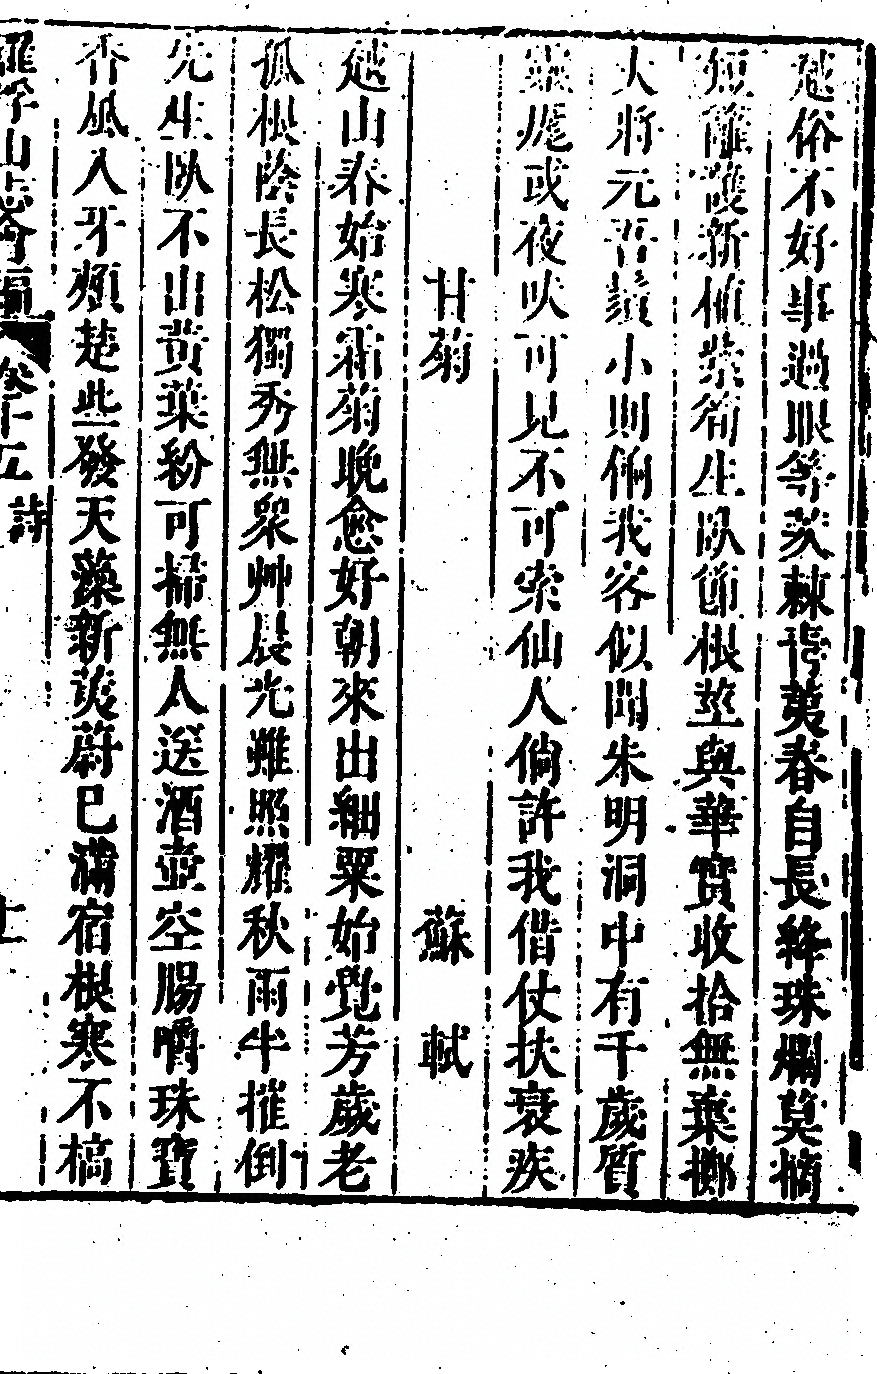 越俗不好事過眼等茨棘青荑春自長絳珠爛莫摘
短籬護新植紫筍生臥節根莖與華實收拾無棄擲
大將玄吾鬢小則餉我客似聞朱明洞中有千歲質
靈庬或夜吠可見不可索仙人倘許我借仗扶衰疾
甘菊 蘇軾
越山春始寒霜菊晚愈好朝來出細粟始覺芳歲老
孤根蔭長松獨秀無衆艸晨光雖照耀秋雨半摧倒
先生臥不出黃葉紛可掃無人送酒壺空腸嚼珠寶
香風入牙頰楚些發天藻新荑蔚已滿宿根寒不槁
羅浮山志會編 卷十五 詩